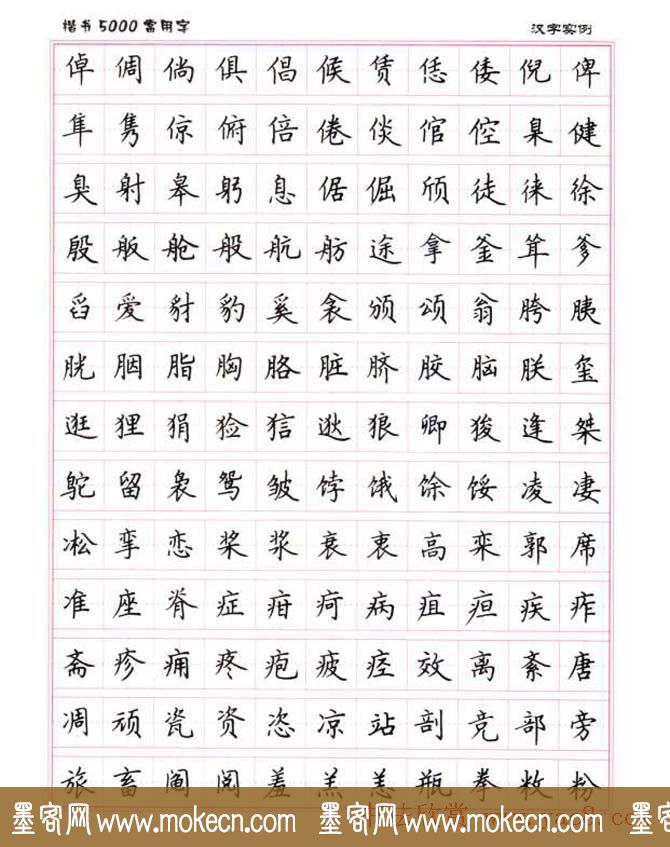 楷书5000常用字 汉字实例
倬 倜 倘 俱 倡 候 赁 恁 倭 倪 俾
隼 隽 倞 俯 倍 倦 倓 倌 倥 臬 健
臭 射 皋 躬 息 倨 倔 颀 徒 徕 徐
殷 舨 舱 般 航 舫 途 拿 釜 耸 爹
舀 爱 豺 豹 奚 衾 颁 颂 翁 胯 胰
胱 胭 脂 胸 胳 脏 脐 胶 脑 朕 玺
逛 狸 狷 猃 狺 逖 狼 卿 狻 逢 桀
鸵 留 袅 鸳 皱 饽 饿 馀 馁 凌 凄
凇 挛 恋 桨 浆 衰 衷 高 栾 郭 席
准 座 脊 症 疳 疴 病 疽 疸 疾 痄
斋 疹 痈 疼 疱 疲 痉 效 离 紊 唐
凋 顽 瓷 资 恣 凉 站 剖 竞 部 旁
旅 畜 阃 阅 羞 羔 恙 瓶 拳 敉 粉
墨客网 www.mokecn.com 墨客网 www.mokecn.com